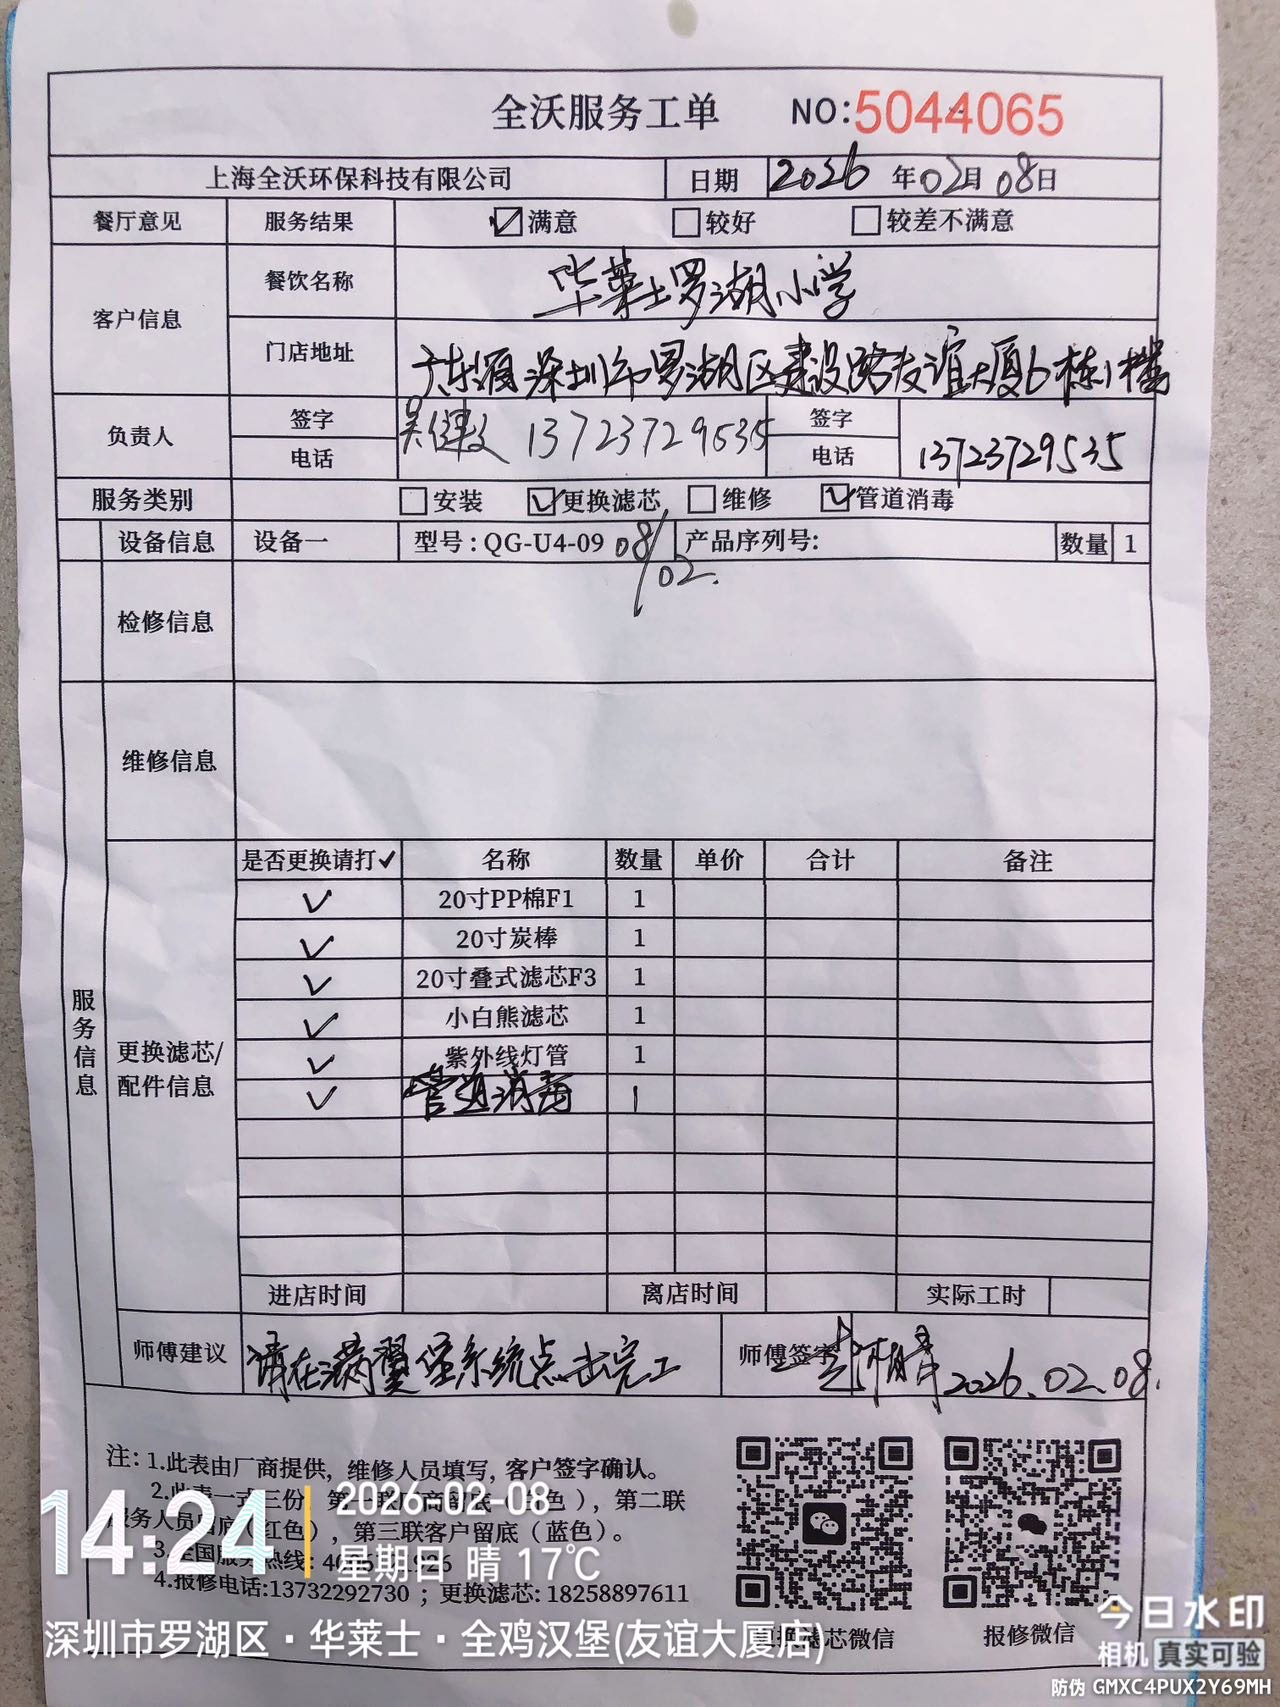 全沃服务工单 NO:5044065
上海全沃环保科技有限公司 日期 2026年02月08日
餐厅意见 服务结果 满意 较好 较差不满意
客户信息 餐饮名称 华莱士罗湖小学
门店地址 广东省深圳市罗湖区建设路友谊大厦6栋1楼
负责人 签字 吴 13723729535 签字
电话 电话 13723729535
服务类别 安装 更换滤芯 维修 管道消毒
设备信息 设备一 型号:QG-U4-09 08/02. 产品序列号: 数量 1
检修信息
维修信息
服务信息
更换滤芯/配件信息
是否更换请打✓ 名称 数量 单价 合计 备注
✓ 20寸PP棉F1 1
✓ 20寸炭棒 1
✓ 20寸叠式滤芯F3 1
✓ 小白熊滤芯 1
✓ 紫外线灯管 1
✓ 管道消毒 1
进店时间 离店时间 实际工时
师傅建议 请在满翼堡系统点击完工 师傅签字 2026.02.08.
注:1.此表由厂商提供,维修人员填写,客户签字确认。
2.此表一式三份,第一联厂商留底(白色),第二联
服务人员留底(红色),第三联客户留底(蓝色)。
3.全国服务热线:
4.报修电话:13732292730 ; 更换滤芯:18258897611
更换滤芯微信 报修微信
14:24
2026-02-08
星期日 晴 17℃
深圳市罗湖区·华莱士·全鸡汉堡(友谊大厦店)
今日水印
相机 真实可验
防伪 GMXC4PUX2Y69MH